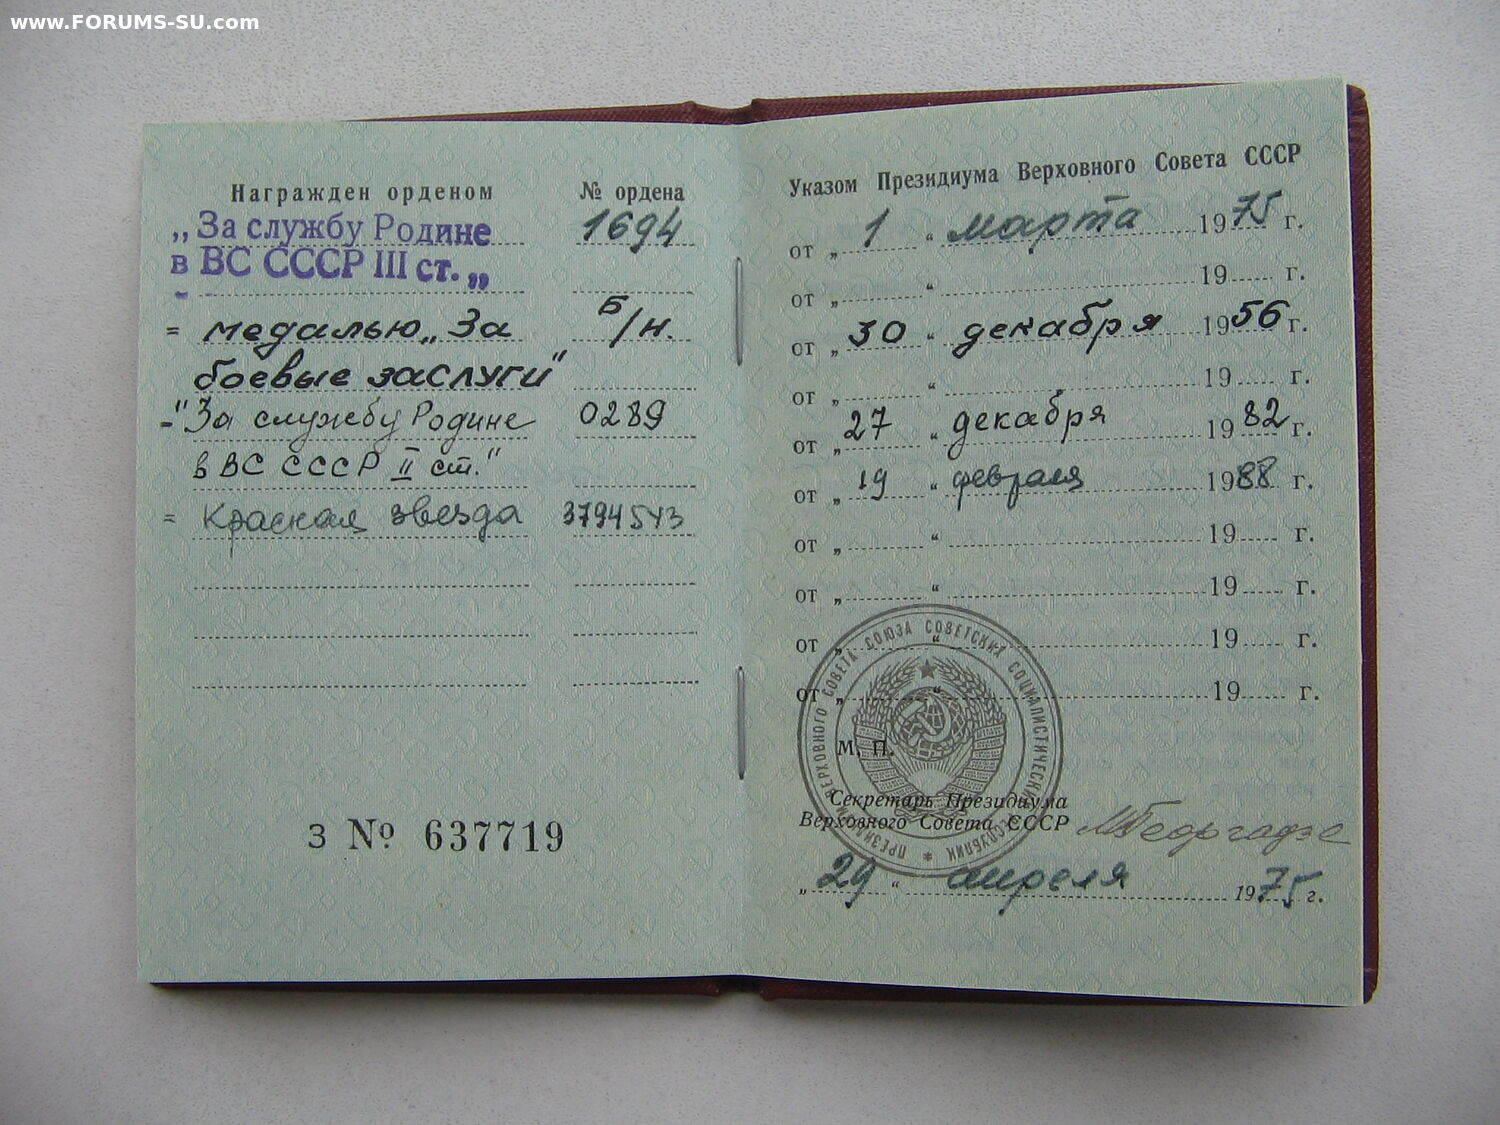 www.FORUMS-SU.com
Награжден орденом № ордена
„За службу Родине 1694
в ВС СССР III ст.„
= медалью „За Б/н.
боевые заслуги"
-"За службу Родине 0289
в ВС СССР II ст."
= Красная звезда 3794543
З № 637719
Указом Президиума Верховного Совета СССР
от „ 1 “ марта 1975 г.
от „ “ 19 г.
от „ 30 “ декабря 1956 г.
от „ “ 19 г.
от „ 27 “ декабря 1982 г.
от „ 19 “ февраля 1988 г.
от „ “ 19 г.
от „ “ 19 г.
от „ “ 19 г.
от „ “ 19 г.
М. П.
ПРЕЗИДИУМ ВЕРХОВНОГО СОВЕТА СОЮЗА СОВЕТСКИХ СОЦИАЛИСТИЧЕСКИХ РЕСПУБЛИК
Секретарь Президиума
Верховного Совета СССР МГеоргадзе
„ 29 “ апреля 1975 г.